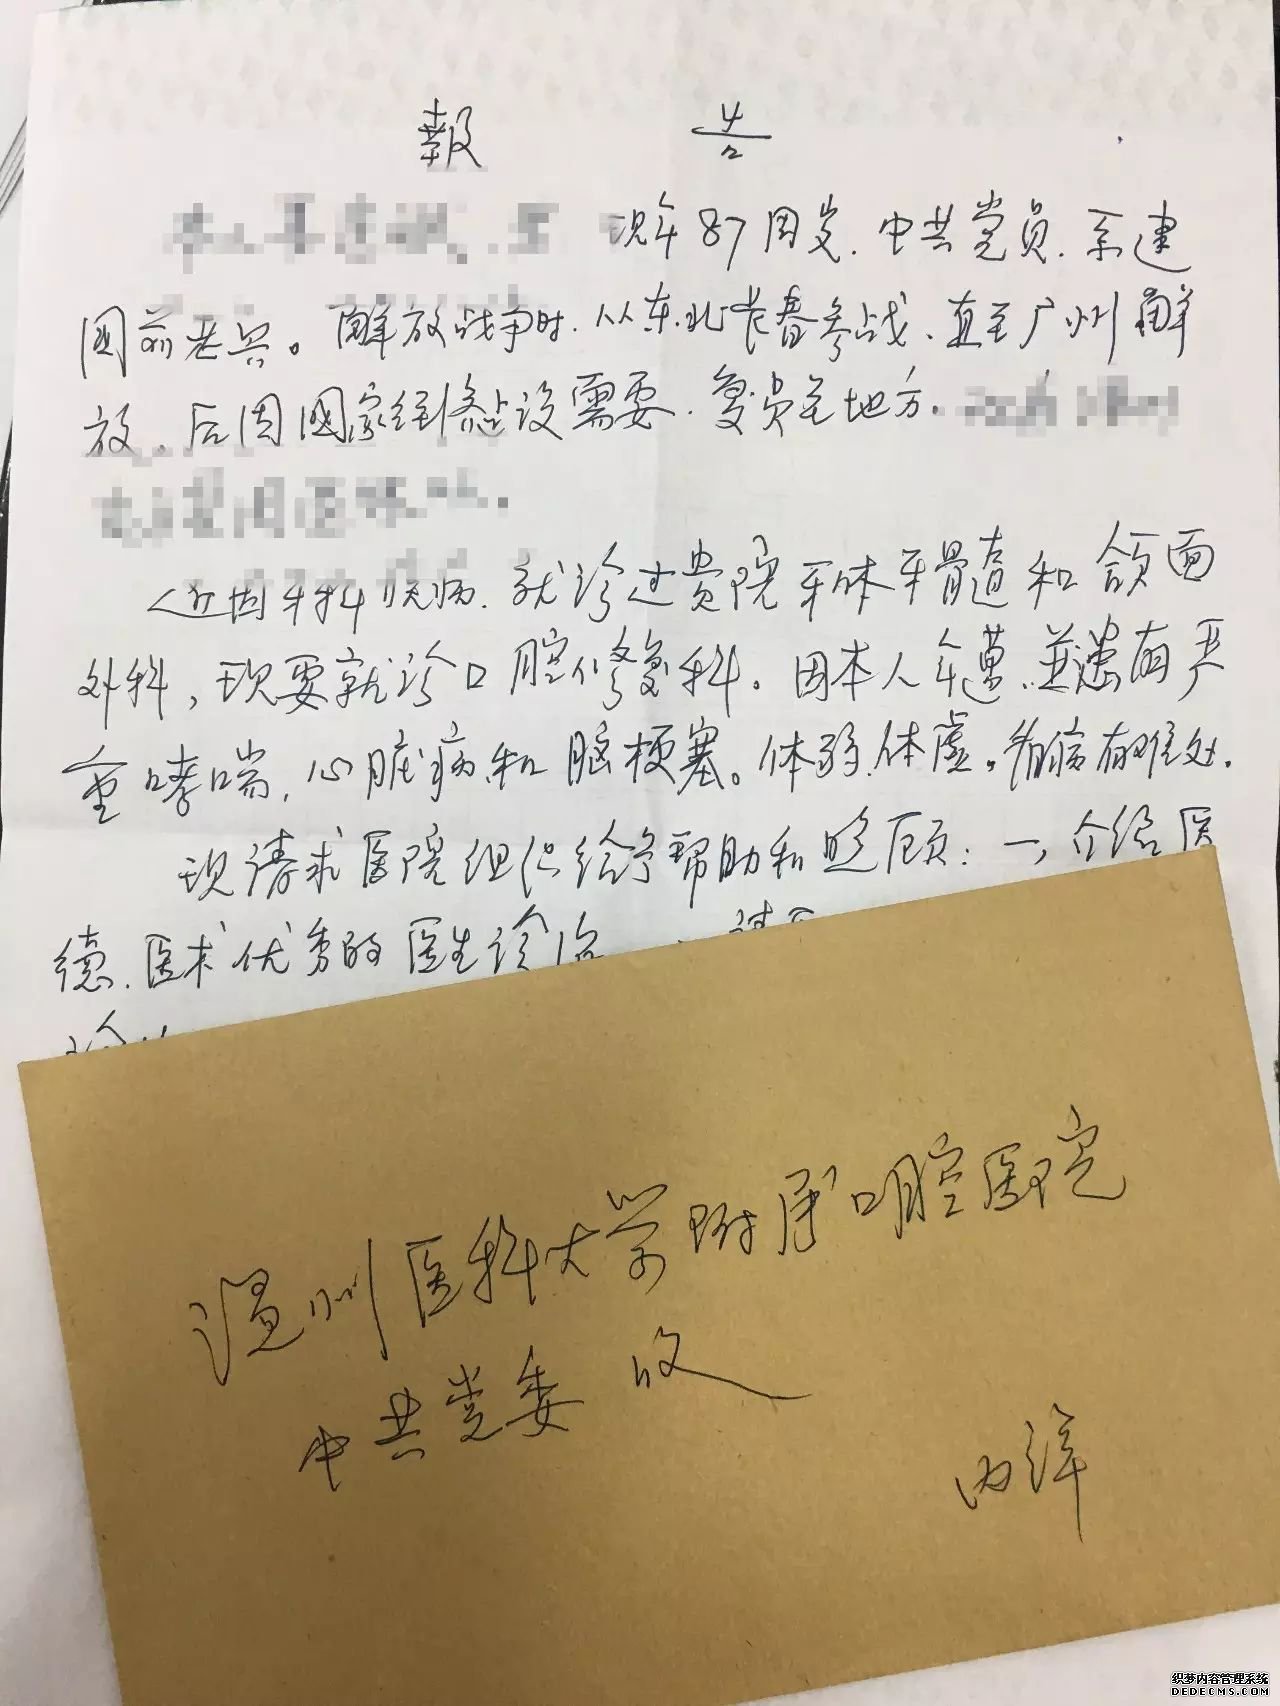 報 告
现年87周岁.中共党员.系建
國前老兵。解放战争时.从东北长春参战.直至广州解
放.后因國家经济建设需要.复员至地方.
近因牙科疾病.就诊过贵院牙体牙髓和颌面
外科,现要就诊口腔修复科。因本人年迈.並患有严
重哮喘,心脏病和脑梗塞。体弱.体虚。看病有难处.
现请求医院组织给予帮助和照顾:一,介绍医
德.医术优秀的医生诊治
温州医科大学附属口腔医院
中共党委 收
内详
织梦内容管理系统
DEDECMS.COM